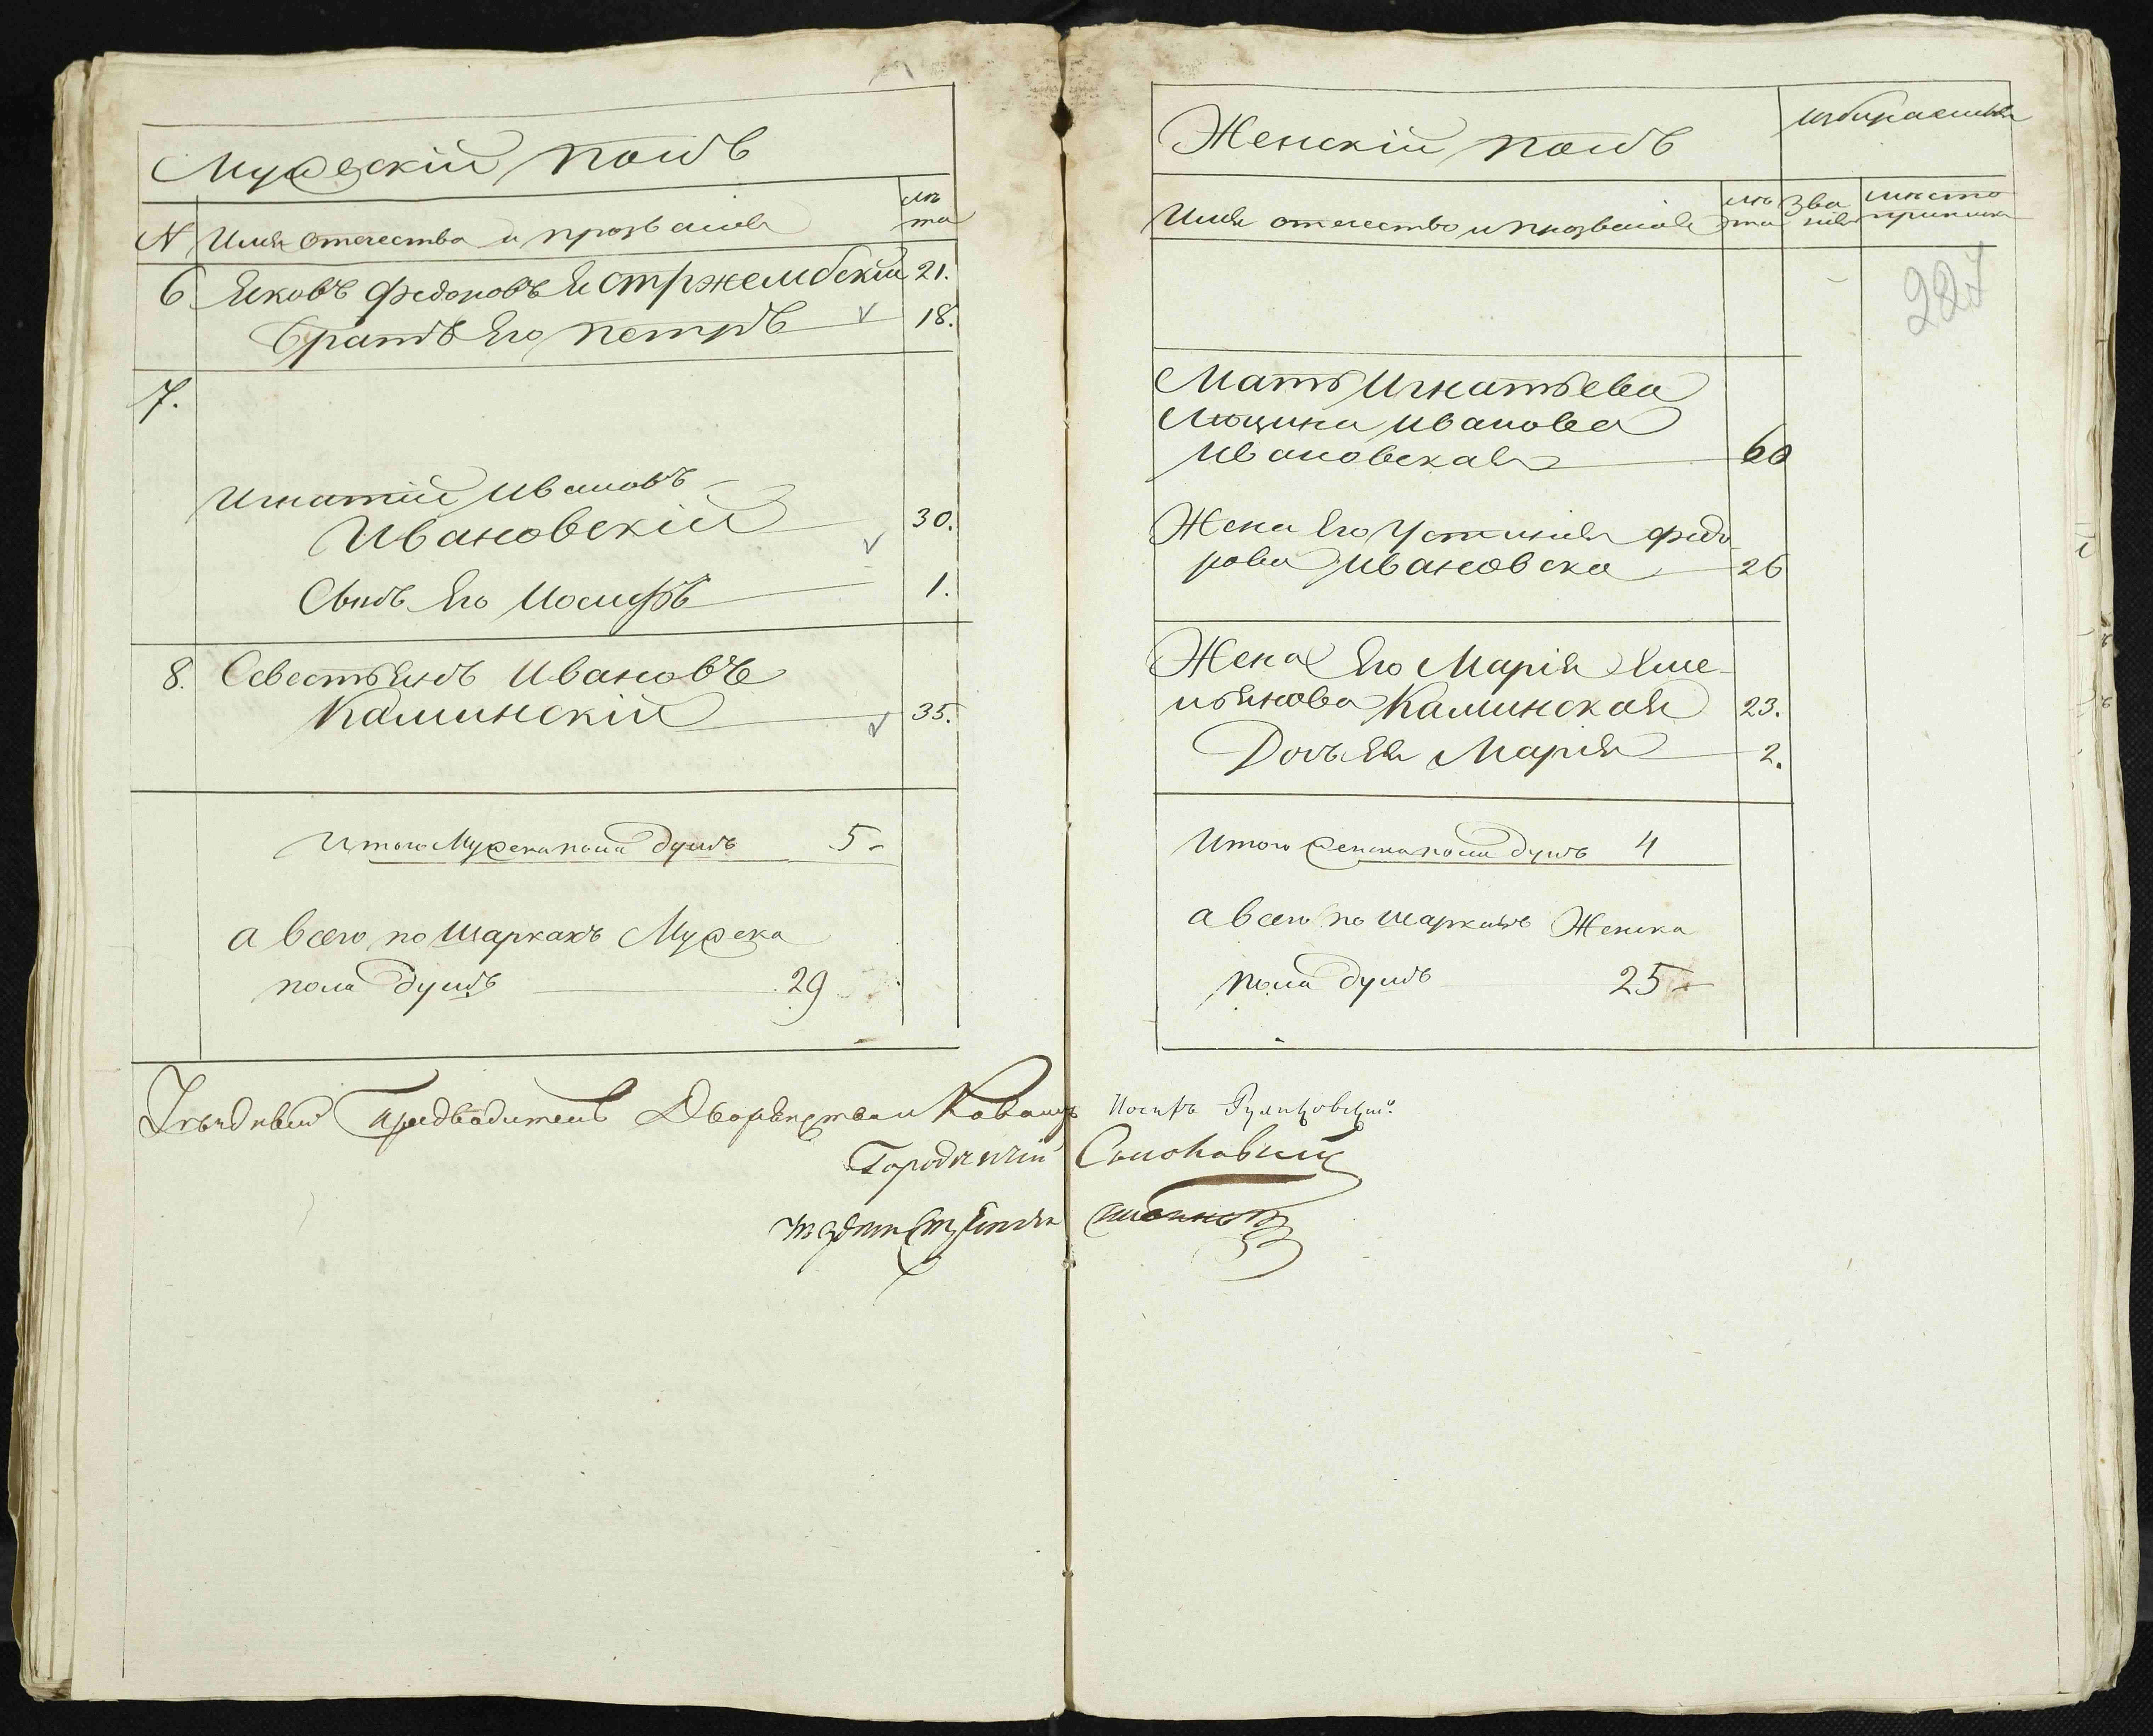 Мужескій полъ
N Имя отечество и прозваніе лѣ
та
6 Яковъ Федоровъ Ястржембскій 21.
Братъ Его Петръ 18.
7.
Игнатій Ивановъ
Ивановскій 30.
Сынъ Его Иосифъ 1.
8. Севестьянъ Ивановъ
Каминскій 35.
Итого Мужеска пола душъ 5
а всего по Шаркахъ Мужска
пола душъ 29
Женскій полъ
избираемыя
Имя отечество и прозваніе лѣ
та Зва
нія мѣсто
приписки
227
Мать Игнатьева
Люцина Иванова
Ивановская 60
Жена Его Устинія Федо
рова Ивановска 26
Жена Его Марія Яме
льянова Каминская 23.
Дочь Ея Марія 2.
Итого женска пола душъ 4
а всего по Шаркахъ Женска
пола душъ 25
Уѣздный Предводитель Дворянства и Кавалеръ Иосифъ
Городничій